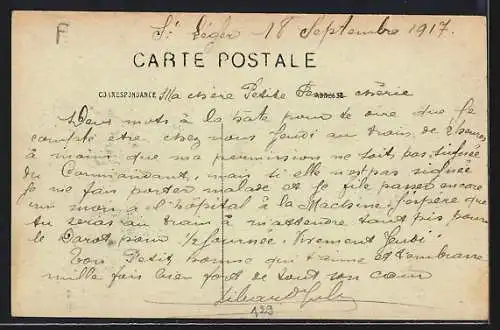 F
St Léger 18 Septembre 1917.
CARTE POSTALE
CORRESPONDANCE Ma chère Petite Femme chérie ADRESSE
Deux mots à la hate pour te dire que Je
compte être chez nous Jeudi au train de 2 heures
à moins que ma permission ne soit pas signée
du Commandant, mais si elle n'est pas signée
Je me fais porter malade et Je file passer encore
un mois à l'hôpital à la Machine. J'espère que
tu seras au train à m'attendre tant pis pour
le Darot pour 1/2 Journée. Vivement Jeudi
Ton Petit homme qui t'aime et t'embrasse
mille fois bien fort de tout son cœur
129